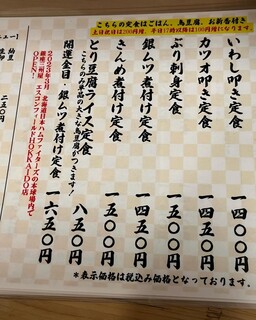 こちらの定食はごはん、鳥豆腐、お新香付き
土日祝日は200円増、平日17時以降は100円増になります。
いわし叩き定食 一四〇〇円
カツオ叩き定食 一四五〇円
ぶり刺身定食 一四五〇円
銀ムツ煮付け定食 一五〇〇円
きんめ煮付け定食 一五〇〇円
とり豆腐ライス定食 八五〇円
こちらの単品の大きな鳥豆腐がつきます！
開運金目・銀ムツ煮付け定食 一六五〇円
2023年3月 北海道日本ハムファイターズの本球場内で
エスコンフィールドHOKKAIDO店
OPEN！
納豆
二五〇円
*表示価格は税込み価格となっております。